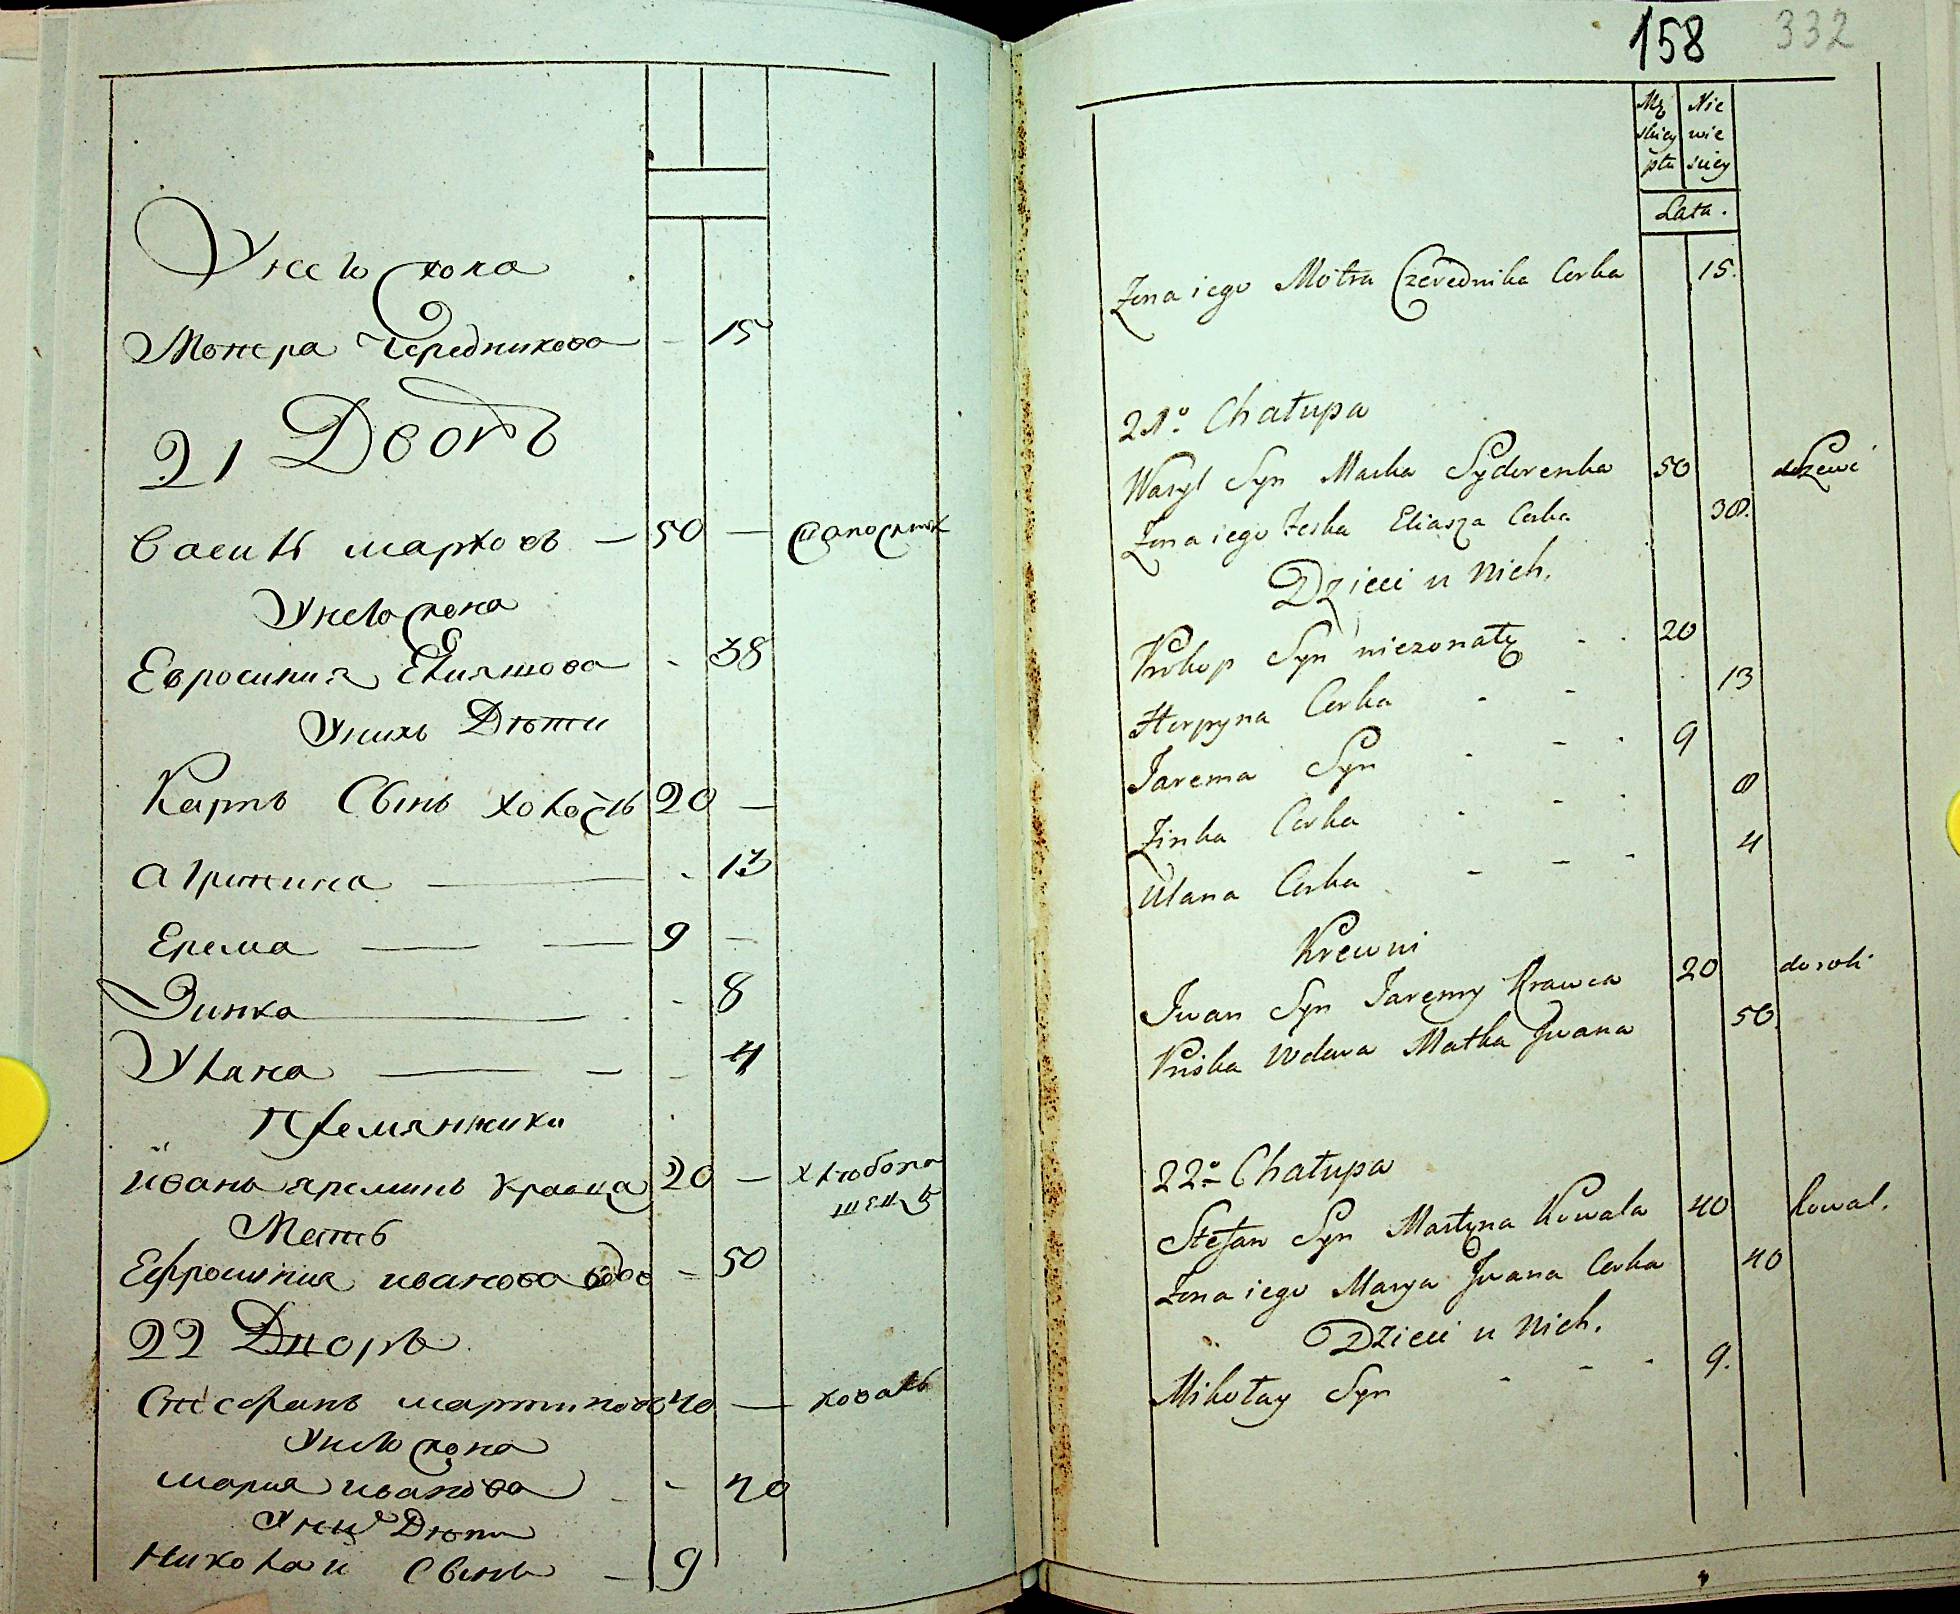 У него жона
Мотера Чередникова - 15
21 Дворъ
Василь марковъ — 50 — сапожник
У него жона
Евросиния Елияшова - 38
У нихъ Дѣти
Карпъ Сынъ холость 20 —
Агрипина — - 13
Ерема — — 9 —
Зинка — - 8
Уляна — — - 4
Племянники
йванъ яреминъ кравца 20 — хлѣбопа
шецъ
Мать
Ефросиния иванова вдов - 50
22 Дворъ
Стефанъ мартиновъ 40 — коваль
У него жона
мария иванова - - 40
У них Дѣти
Николаи Сынъ — 9
158 332
Mę Nie
skiey wie
płu sciey
Lata.
Żona iego Motra Czerednika Corka 15.
21º Chałupa
Wasyl Syn Marka Syderenka 50 dszewc
Żona iego Feska Eliasza Corka 38.
Dzieci u Nich.
Prokop Syn niezonaty - - 20
Horpyna Corka - - - 13
Jarema Syn - - - 9
Zinka Corka - - - 8
Ulana Corka - - - 4
Krewni
Jwan Syn Jaremy Krawca 20 do roli
Priska Wdowa Matka Jwana 50.
22º Chałupa
Stefan Syn Martyna Kowala 40 kowal.
Żona iego Marya Jwana Corka 40
Dzieci u Nich.
Mikołay Syn - - - 9.